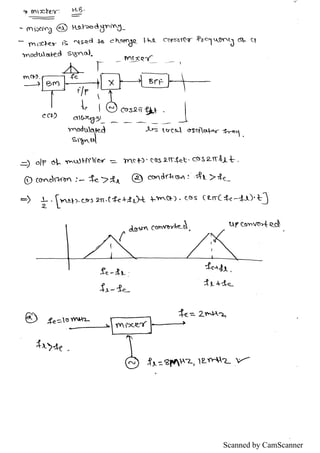 → mixter H.B.
- mixing (or) Hetrodyning.
- mixter is used to change the carrier frequency of a
modulated signal.
mixer
m(t). fc
BM X BPF
f/p
fc cos2πflt.
c(t) any
modulated fl→ local oscillator freq.
Signal
⇒) o/p of multiplier = m(t)·cos2πfct·cos2πflt.
① condition :- fc > fl ② condition: fl > fc
⇒) 1/2 · [m(t)·cos2π(fc+fl)t + m(t)· cos (2π(fc-fl)·t]
down converted. up converted.
fc-fl fc+fl.
fl-fc fl+fc
fc=10mHz mixer fc= 2mHz
fl>fc.
fl=8mHz, 12mHz ✓
Scanned by CamScanner